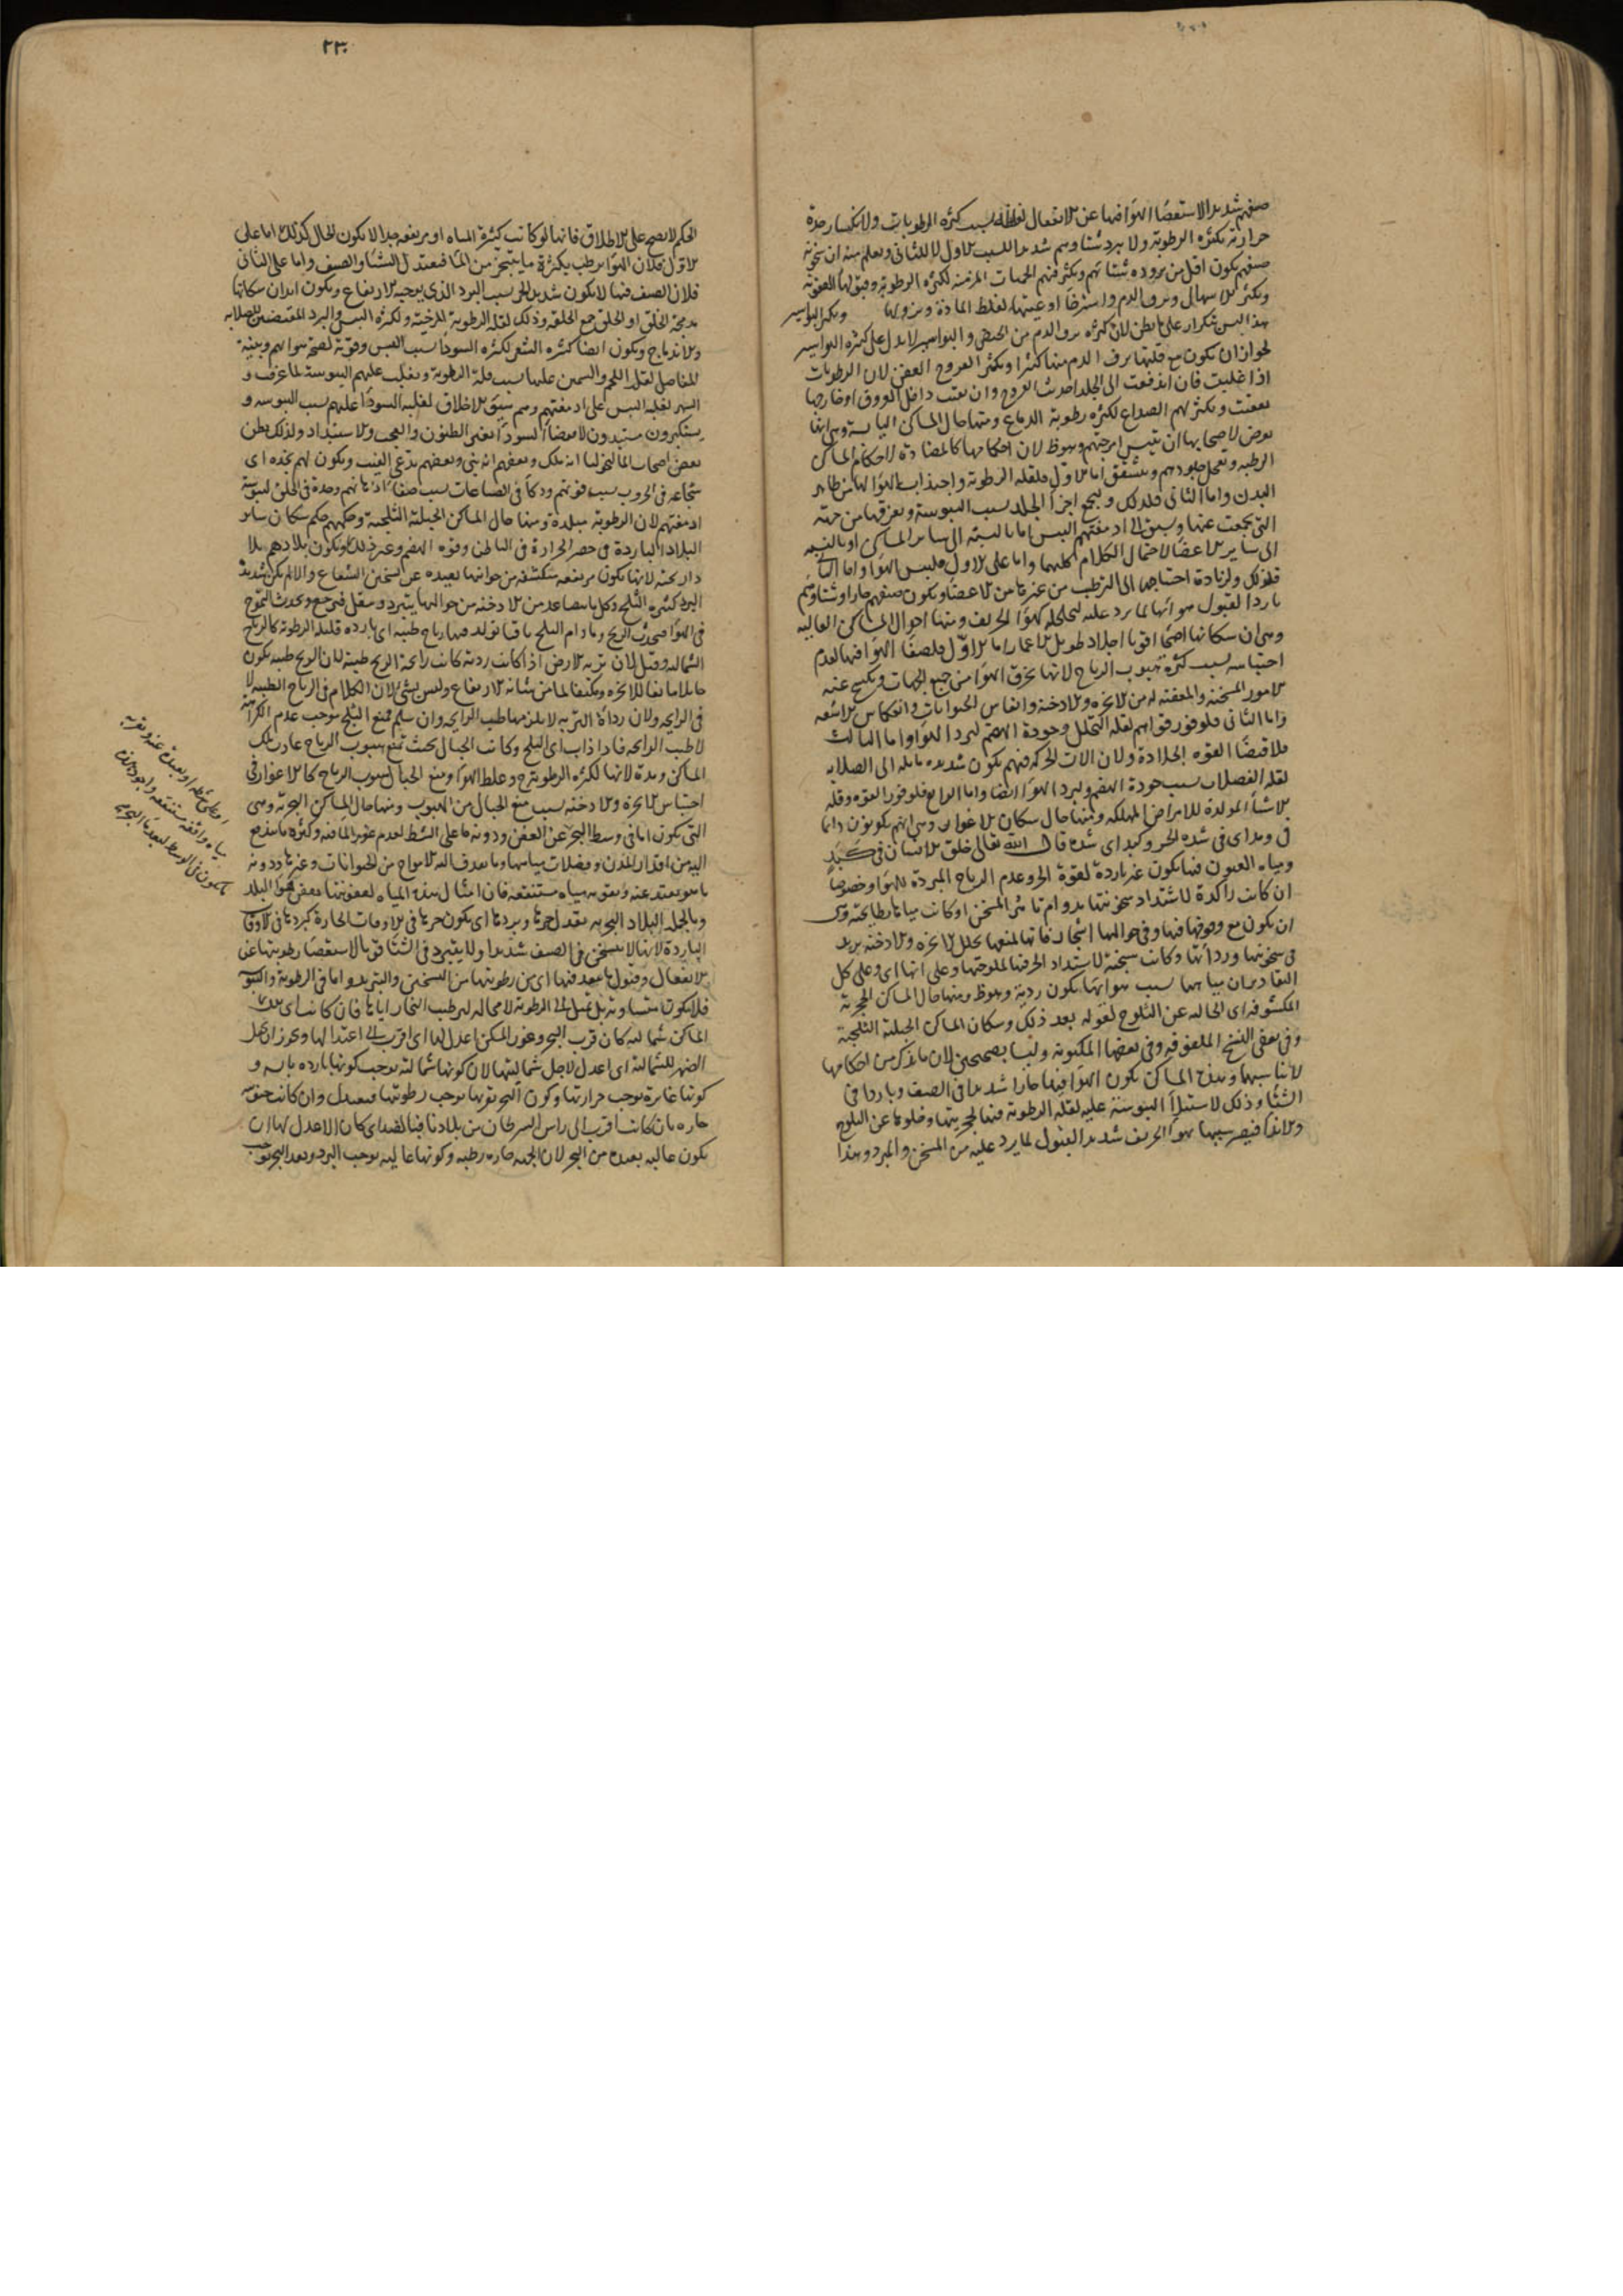 صيفهم شديدا لاستعصاء الهواء فيها عن الانفعال لغلظه بسبب كثرة الرطوبات ولانكسار حدة
حرارته بكثرة الرطوبة ولا يبرد شتاوهم شديدا للسبب الاول لا للثاني ويعلم منه ان سخونة
صيفهم يكون اقل من برودة شتائهم ويكثر فيهم الحميات المزمنة لكثرة الرطوبة وقبولها العفونة
ويكثر الاسهال ونزف الدم واسترخاء اوعيتها لغلظ المادة ونزولها ويكثر البواسير
هذا ليس بتكرار على ما يظن لان كثرة نزف الدم من الحيض والبواسير لا يدل على كثرة البواسير
لجواز ان يكون مع قلتها نزف الدم منها كثيرا ويكثر القروح العفن لان الرطوبات
اذا غلبت فان اندفعت الى الجلد احدثت القروح وان بقيت داخل العروق او خارجها
تعفنت ويكثر لهم الصداع لكثرة رطوبة الدماغ ومنها حال المساكن اليابسة وهي انها
يعرض لاصحابها ان ييبس امزجتهم وهو ظ لان احكامها كالمضادة لاحكام المساكن
الرطبة وتقحل جلودهم ويتشقق اما الاول فلقلة الرطوبة واجتذاب الهواء لها من ظاهر
البدن واما الثاني فلذلك ويجمع اجزاء الجلد بسبب اليبوسة وتفرقها من جهة
التي تجمعت عنها ويسبق الى ادمغتهم اليبس اما بالنسبة الى ساير المساكن او بالنسبة
الى ساير الاعضاء لاحتمال الكلام كليهما واما على الاول فليبس الهواء واما الثاني
فلذلك ولزيادة احتياجها الى الترطيب من غيرها من الاعضاء ويكون صيفهم حارا وشتاوهم
باردا لقبول هوائها لما يرد عليه لتخلخله كهواء الخريف ومنها احوال المساكن العالية
وهي ان سكانها اصحاء اقوياء اجلاد طويل الاعمار اما الاول فلصفاء الهواء فيها لعدم
احتباسه بسبب كثرة هبوب الرياح لانها يخرق الهواء من جميع الجهات ويكسح عنه
الامور المسخنة والمعفنة له من الابخرة والادخنة وانفاس الحيوانات وانعكاس الاشعة
واما الثاني فلوفور قواهم لقلة التحلل وجودة الهضم لبرد الهواء واما الثالث
فلاقتضاء القوة الجلادة ولان الات الحركة فيهم يكون شديدة مايلة الى الصلابة
لقلة الفضلات بسبب جودة الهضم ولبرد الهواء ايضا واما الرابع فلوفور القوة وقلة
الاشياء المولدة للامراض المهلكة ومنها حال سكان الاغوار وهي انهم يكونون دائما
في ومد اي في شدة الحر وكبد اي شدة قال الله تعالى خلق الانسان في كبد
ومياه العيون فيها يكون غير باردة لقوة الحر وعدم الرياح المبردة للهواء وخصوصا
ان كانت راكدة لاشتداد سخونتها بدوام تاثير المسخن او كانت مياها بطايحية وهي
ان يكون مع وقوفها فيها وفي حواليها اشجار فانها لمنعها تحلل الابخرة والادخنة يزيد
في سخونتها ورداءتها وكانت سبخة لاشتداد الحر فيها لملوحتها وعلى انها اي وعلى كل
التقادير ان مياهها بسبب هوائها يكون ردية وهو ظ ومنها حال المساكن الحجرية
المكشوفة اي الخالية عن الثلوج لقوله بعد ذلك وسكان المساكن الجبلية الثلجية
وفي بعض النسخ وفي بعضها المكنونة وليسا بصحيحين لان ما يذكر من احكامها
لا يناسبهما وهذه المساكن يكون الهواء فيها حارا شديدا في الصيف وباردا في
الشتاء وذلك لاستيلاء اليبوسة عليه لقلة الرطوبة فيها لحجريتها وخلوها عن الثلوج
والانداء فيصير بسببها هواء الخريف شديد القبول لما يرد عليه من المسخن والمبرد وهذا
٢٣٠
الحكم لا يصح على الاطلاق فانها لو كانت كثيرة المياه او مرتفعة جدا لا يكون الحال كذلك اما على
الاول فلان الهواء يرطب بكثرة ما يتبخر من الماء فيعتدل الشتاء والصيف واما على الثاني
فلان الصيف فيها لا يكون شديد الحر بسبب البرد الذي يوجبه الارتفاع ويكون ابدان سكانها
مدمجة الخلق او الخلق جمع الخلقة وذلك لقلة الرطوبة المرخية ولكثرة اليبس والبرد المقتضيين للصلابة
والاندماج ويكون ايضا كثيرة الشعر لكثرة السوداء بسبب اليبس وقوية لصحة هوائهم وبينة
المفاصل لقلة اللحم والسمين عليها بسبب قلة الرطوبة ويغلب عليهم اليبوسة لما عرف و
السهر لغلبة اليبس على ادمغتهم وهم سيئو الاخلاق لغلبة السوداء عليهم بسبب اليبوسة و
يستكبرون مستبدون لاقتضاء السوداء بعض الظنون والعجب والاستبداد ولذلك يظن
بعض اصحاب المالنخوليا انه ملك وبعضهم انه نبي وبعضهم يدعي الغيب ويكون لهم نجدة اي
شجاعة في الحروب بسبب قوتهم وذكاء في الصناعات بسبب صفاء اذهانهم وحدة في الخلق ليبوسة
ادمغتهم لان الرطوبة مبلدة ومنها حال المساكن الجبلية الثلجية وحكمهم حكم سكان ساير
البلاد الباردة في حصر الحرارة في الباطن وقوة الهضم وغير ذلك ويكون بلادهم بلادا
ريحية لانها يكون مرتفعة منكشفة من جوانبها بعيدة عن تسخين الشعاع والا لم يكن شديدة
البرد كثيرة الثلج وكل ما يتصاعد من الادخنة من حواليها يتبرد ويثقل فيرجع ويحدث التموج
في الهواء فيحدث الريح وما دام الثلج باقيا تولد فيها رياح طيبة اي باردة قليلة الرطوبة كالرياح
الشمالية وقيل لان تربة الارض اذا كانت ردية كانت رائحة الريح طيبة لان الريح الطيبة يكون
في الرايحة ولان رداءة التربة لا يلزمها طيب الرايحة وان سلم فمنع الثلج يوجب عدم الكراهية
لا طيب الرايحة فاذا ذاب اي الثلج وكانت الجبال بحيث تمنع هبوب الرياح عادت تلك
المساكن ومدة لانها لكثرة الرطوبة وغلظ الهواء ومنع الجبال هبوب الرياح كالاغوار في
احتباس الابخرة والادخنة بسبب منع الجبال من الهبوب ومنها حال المساكن البحرية وهي
التي يكون اما في وسط البحر عن العفن ودونه ما على الشط لعدم غور الماء فيه وكثرة ما يندفع
اليه من اقذار المدن وفضلات مياهها وما يقذف اليه الامواج من الحيوانات وغيرها ودونه
ما هو بعيد عنه وبقربه مياه مستنقعة فان امثال هذه المياه لعفونتها يعفن هواء البلد
وبالجملة البلاد البحرية يعتدل حرها وبردها اي يكون حرها في الاوقات الحارة كبردها في الاوقات
الباردة لانها لا يتسخن في الصيف شديدا ولا يتبرد في الشتاء قويا لاستعصاء رطوبتها عن
الانفعال وقبول ما ينفذ فيها اي من رطوبتها من التسخين والتبريد واما في الرطوبة واليبوسة
فلا يكون متساوية بل تميل الى الرطوبة لا محالة لترطيب البخار اياها فان كانت اي هذه
المساكن شمالية كان قرب البحر وغور المسكن اعدل لها اي اقرب الى اعتدالها ويجوز ان يجعل
الضمير للشمالية اي اعدل لاجل شماليتها لان كونها شمالية يوجب كونها باردة يابسة و
كونها غايرة يوجب حرارتها وكون البحر بقربها يوجب رطوبتها فيعتدل وان كانت جنوبية
حارة بان كانت اقرب الى راس السرطان من بلادنا فبالضد اي كان الاعدل لها ان
يكون عالية بعيدة من البحر لان الجنوبية حارة رطبة وكونها عالية يوجب البرد وبعد البحر يوجب
او على شطه او بعيدة عنه وبقربه
مياه واقفة مستنقعة واجود هذه
ما يكون في الوسط لبعد ماء البحر